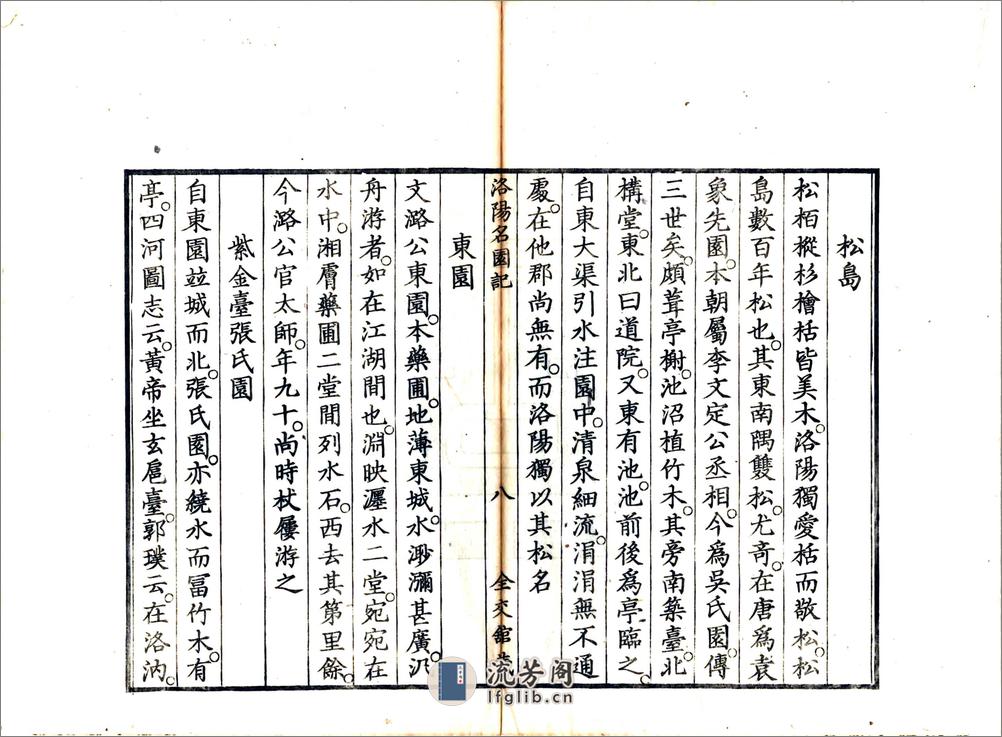 松島
松栢樅杉檜栝皆美木。洛陽獨愛栝而敬松。松
島數百年松也。其東南隅雙松。尤奇。在唐爲袁
象先園。本朝屬李文定公丞相。今爲吳氏園。傳
三世矣。頗葺亭榭。池沼植竹木。其旁南築臺。北
構堂。東北曰道院。又東有池。池前後爲亭臨之。
自東大渠引水注園中。清泉細流。涓涓無不通
處。在他郡尚無有。而洛陽獨以其松名
洛陽名園記 八 全交館
東園
文潞公東園。本藥圃。地薄東城。水渺瀰甚廣。汎
舟游者。如在江湖間也。淵映瀍水二堂。宛宛在
水中。湘膚藥圃二堂間列水石。西去其第里餘。
今潞公官太師。年九十。尚時杖屨游之
紫金臺張氏園
自東園竝城而北。張氏園。亦繞水而冨竹木。有
亭。四河圖志云。黃帝坐玄扈臺。郭璞云。在洛汭。
流芳阁
lfglib.cn.com